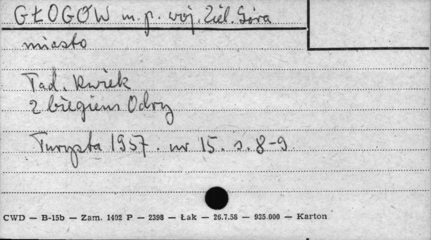 GŁOGÓW m. p. woj. Ziel. Góra
miasto
Tad. Kwiek
Z biegiem Odry
Turysta 1957. nr 15. s. 8-9
CWD — B-15b — Zam. 1402 P — 2398 — Łak — 26.7.58 — 935.000 — Karton